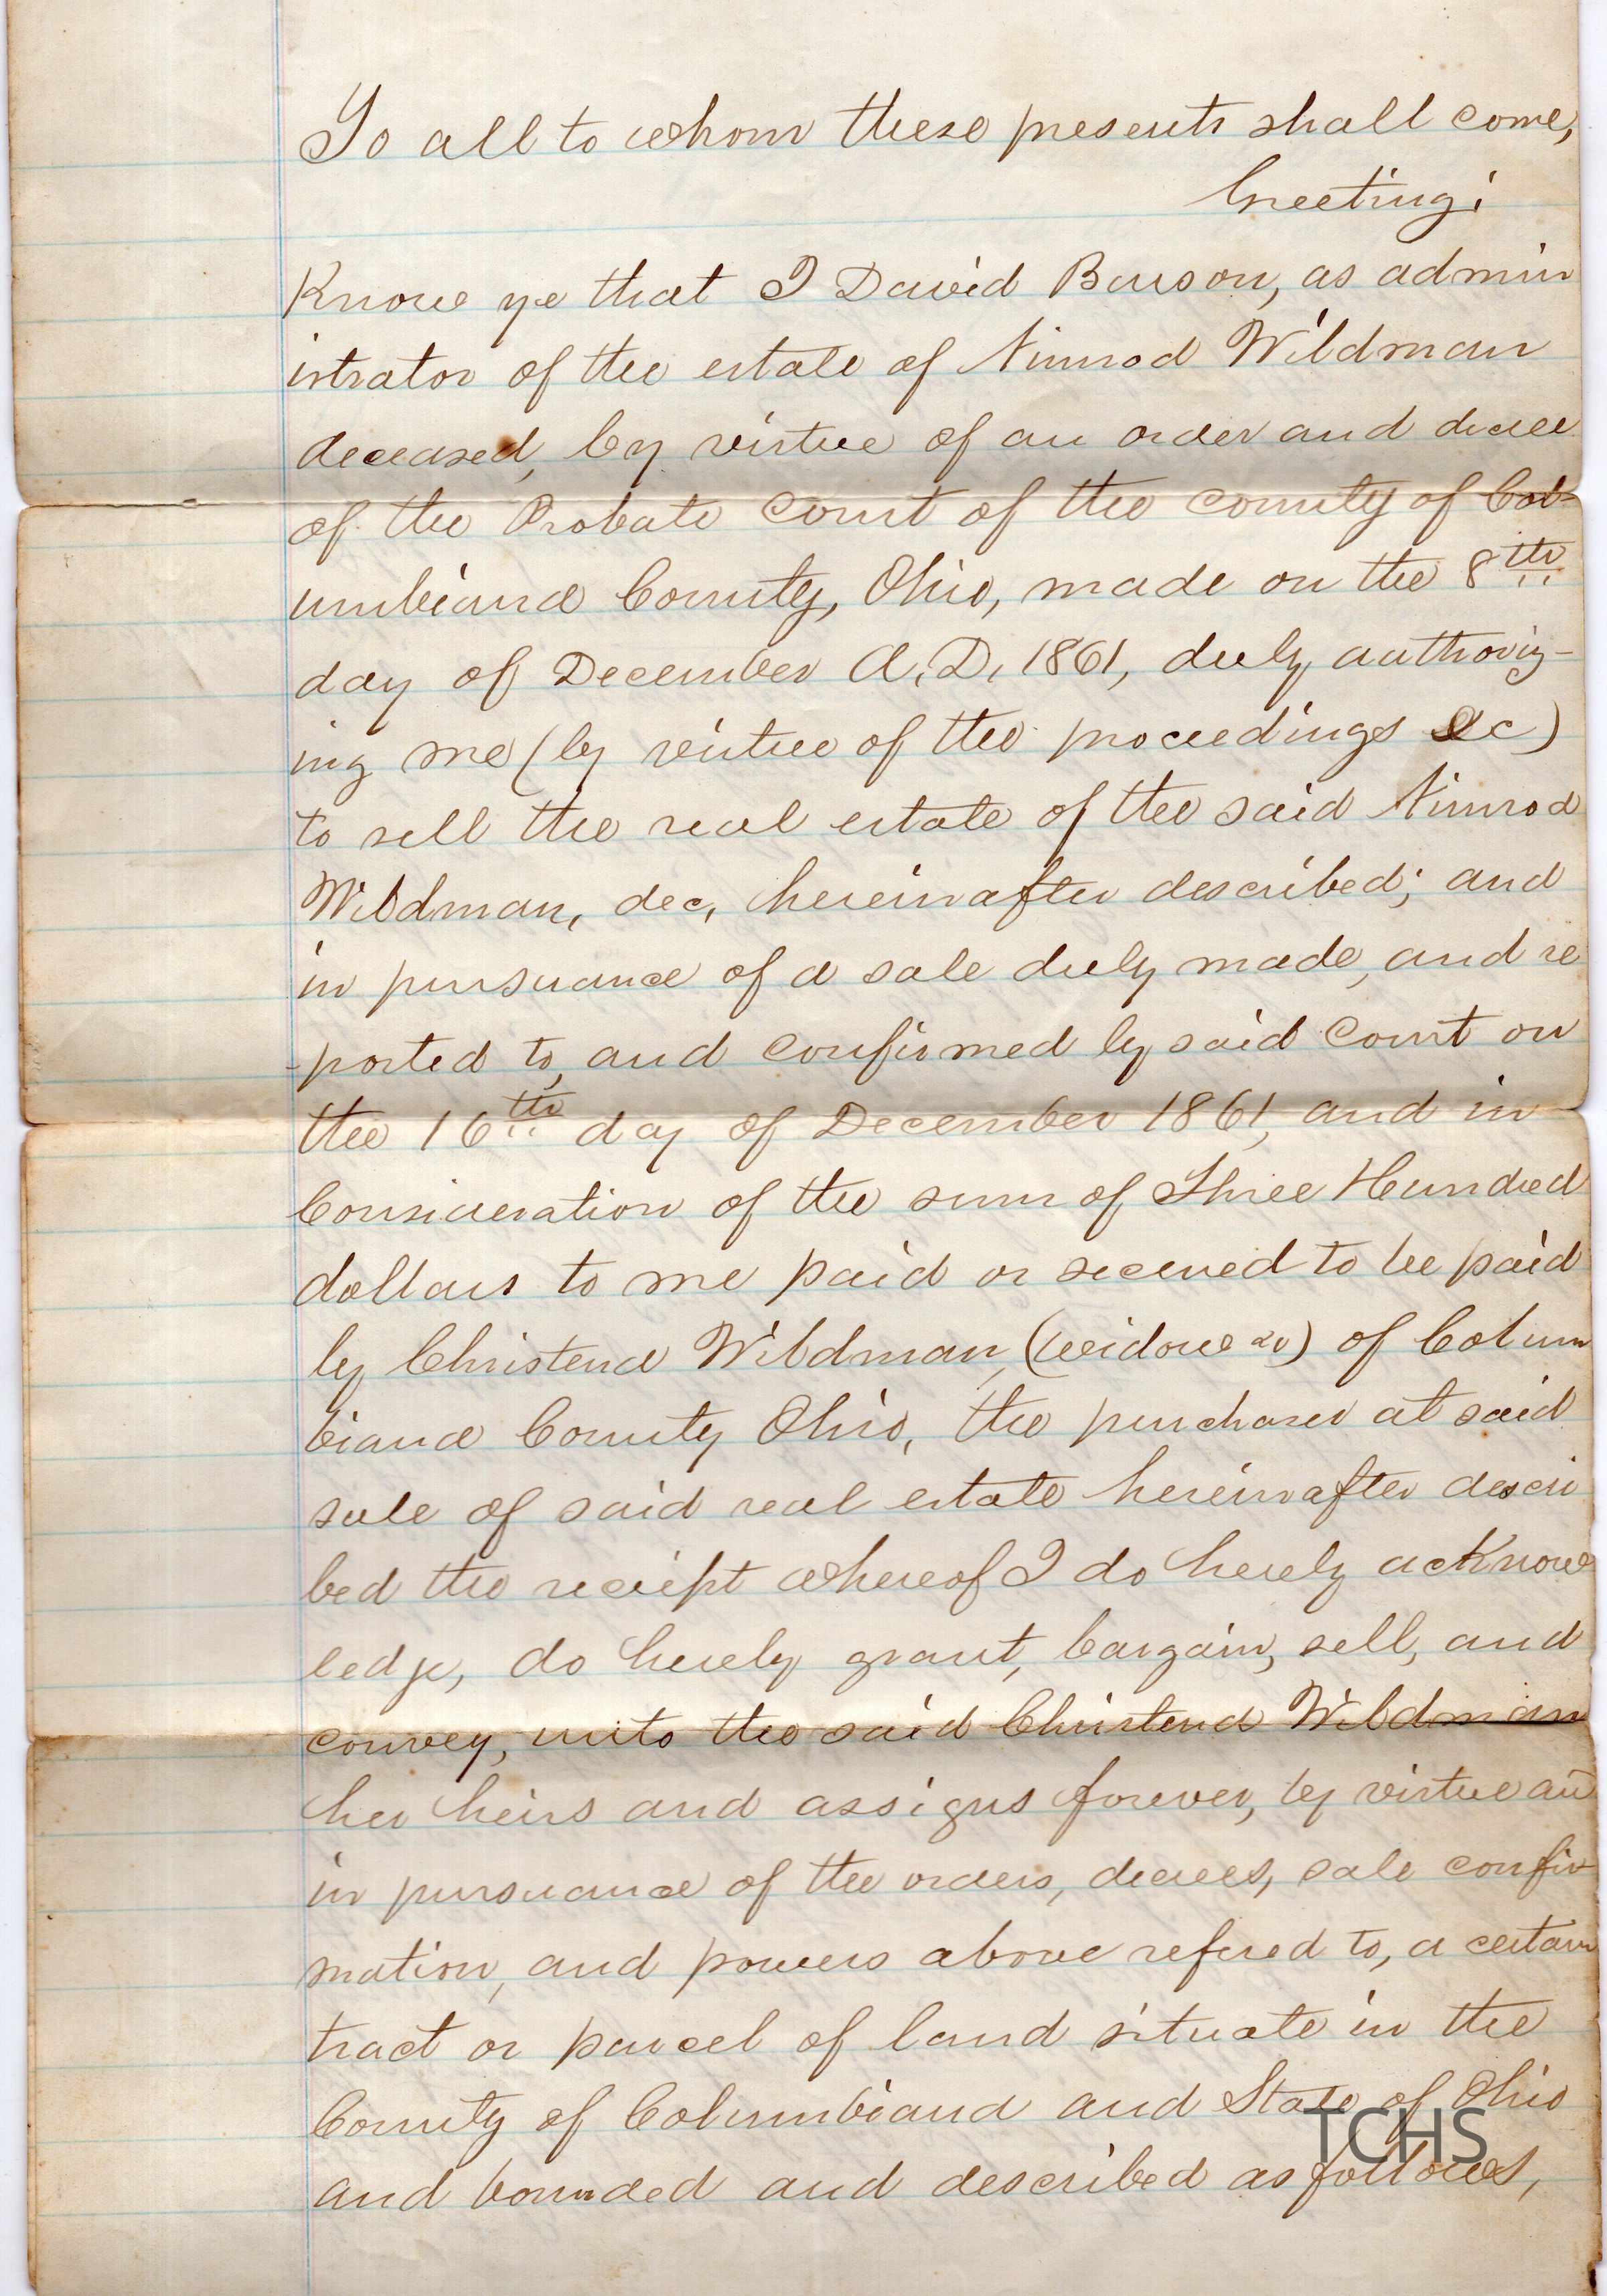 To all to whom these presents shall come,
Greeting;
Know ye that I David Burson, as admin
istrator of the estate of Nimrod Wildman
deceased, by virtue of an order and decree
of the Probate Court of the county of Col-
umbiana County, Ohio, made on the 8th
day of December A.D. 1861, duly authoriz-
ing me (by virtue of the proceedings &c)
to sell the real estate of the said Nimrod
Wildman, dec, hereinafter described; and
in pursuance of a sale duly made, and re
-ported to, and confirmed by said Court on
the 16th day of December 1861, and in
Consideration of the sum of Three Hundred
dollars to me paid or secured to be paid
by Christena Wildman, (widow &c) of Colum
biana County Ohio, the purchaser at said
sale of said real estate hereinafter descri
bed the reciept whereof I do hereby acknow
ledge, do hereby grant, bargain, sell, and
convey, unto the said Christena Wildman
her heirs and assigns forever, by virtue and
in pursuance of the orders, decrees, sale confir
mation, and powers above refered to, a certain
tract or parcel of land situate in the
County of Columbiana and State of Ohio
and bounded and described as follows,
TCHS